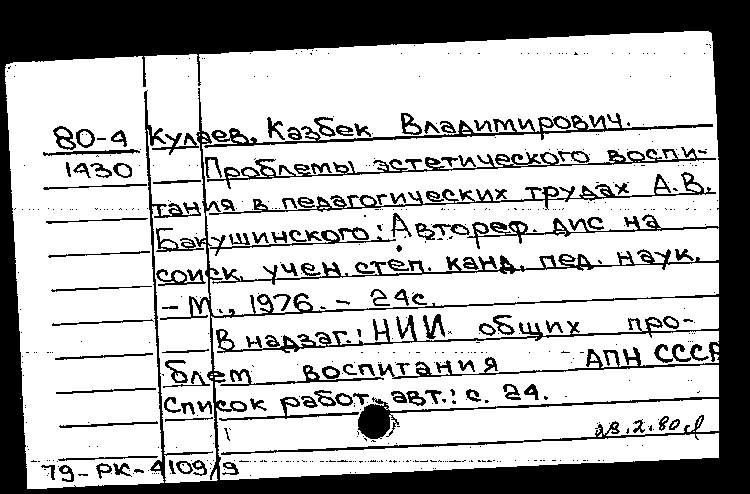 80-4 Кулаев, Казбек Владимирович.
1430 Проблемы эстетического воспи-
тания в педагогических трудах А.В.
Бакушинского: Автореф. дис на
соиск. учен. степ. канд. пед. наук.
- М., 1976. - 24с.
В надзаг.: НИИ общих про-
блем воспитания АПН СССР
Список работ авт.: с. 24.
28.2.80
79-РК-4109/9